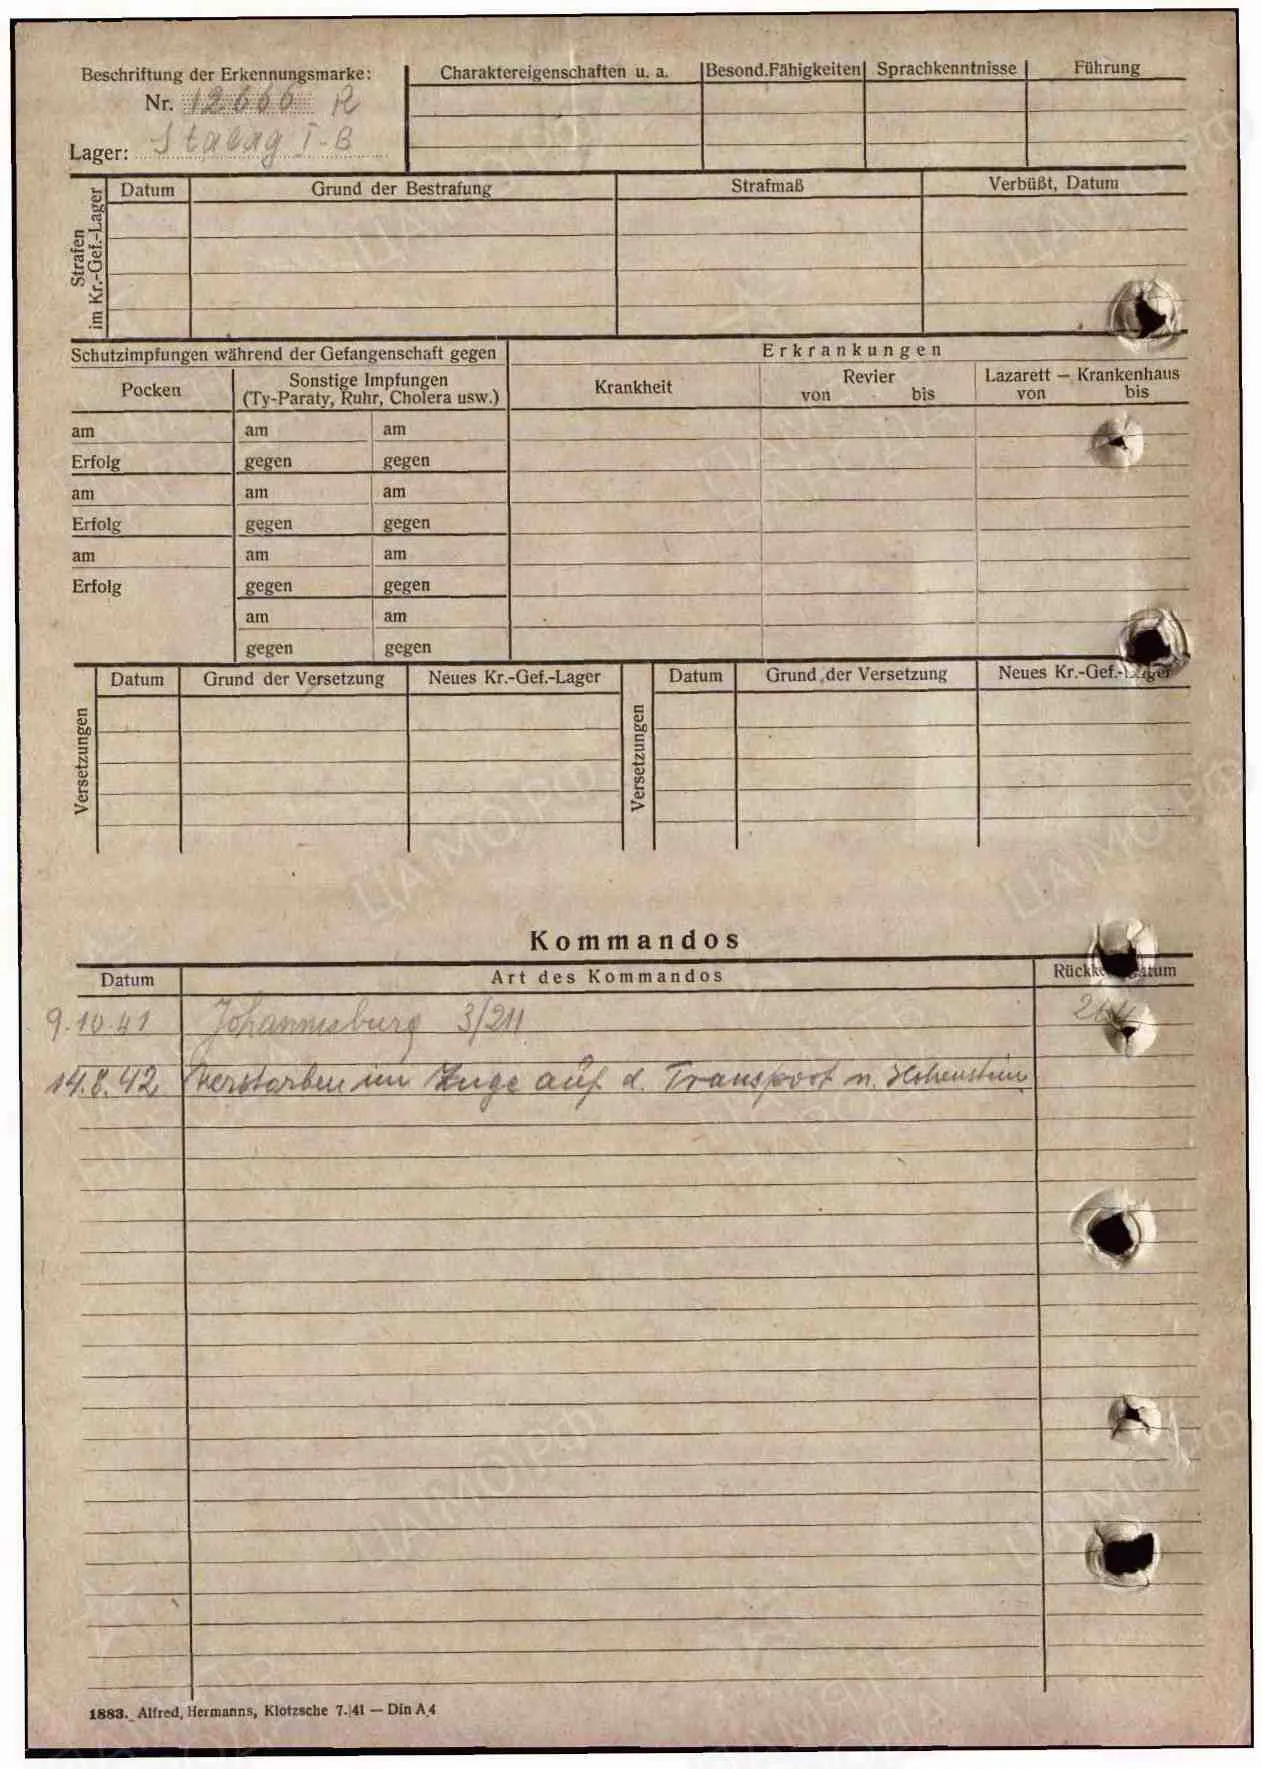 Beschriftung der Erkennungsmarke:
Nr. 12666 R
Lager: Stalag I-B
Charaktereigenschaften u. a. Besond.Fähigkeiten Sprachkenntnisse Führung
Strafen
im Kr.-Gef.-Lager
Datum Grund der Bestrafung Strafmaß Verbüßt, Datum
Schutzimpfungen während der Gefangenschaft gegen
Pocken
Sonstige Impfungen
(Ty-Paraty, Ruhr, Cholera usw.)
am am am
Erfolg gegen gegen
am am am
Erfolg gegen gegen
am am am
Erfolg gegen gegen
am am
gegen gegen
Erkrankungen
Krankheit
Revier
von bis
Lazarett – Krankenhaus
von bis
Versetzungen
Datum Grund der Versetzung Neues Kr.-Gef.-Lager
Versetzungen
Datum Grund der Versetzung Neues Kr.-Gef.-Lager
Kommandos
Datum Art des Kommandos
9.10.41 Johannisburg 3/211
14.8.42 verstorben im Zuge auf d. Transport n. Hohenstein
1883. Alfred Hermanns, Klotzsche 7. 41 — Din A 4
ЦАМО РФ